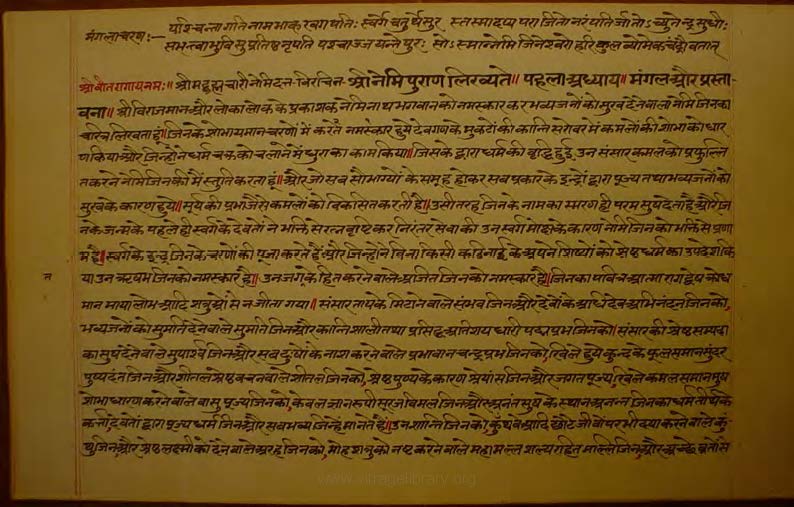 मंगलाचरण:— यश्चिन्ता गतिनामभाक खगपतिः स्वर्गे चतुर्थे सुर स्तस्मादप्य पराजितो नरपतिर्जातोऽच्युतेन्द्र सुधीः
सभत्वा भुवि सुप्रतिष्ठ नृपति पश्चाज्जयन्ते पुरः सोऽस्मान्नेमि जिनेश्वरो हरिकुल व्योमेक चंद्रोवतात्
श्री वीतरागाय नमः॥ श्रीमद्ब्रह्मचारी नेमिदत्त विरचित श्री नेमि पुराण लिख्यते॥ पहला अध्याय॥ मंगल और प्रस्ता-
वना॥ श्री विराजमान और लोका लोक के प्रकाशक नेमिनाथ भगवान को नमस्कार कर भव्य जनों को सुख देने वाला नेमि जिन का
चारित्र लिखता हूं॥ जिनके शोभायमान चरणों में करते नमस्कार हुये देवगण के मुकटों की कान्ति सरोवर में कमलों की शोभा को धार
ण किया और जिन्होंने धर्म चक्र को चलाने में धुरा का काम किया॥ जिसके द्वारा धर्म की वृद्धि हुई उन संसार कमल को प्रफुल्लि
त करने नेमि जिन की मैं स्तुति करता हूं॥ और जो सब सौभाग्यों के समूह होकर सब प्रकार के इन्द्रों द्वारा पूज्य तथा भव्य जनों को
सुख के कारण हुये॥ सूर्य की प्रभा जैसे कमलों को विकसित करती है॥ उसी तरह जिनके नाम का स्मरण ही परम सुख देता है और जि
नके जन्म के पहले ही स्वर्ग के देवतों ने भक्ति से रत्न वृष्टि कर निरंतर सेवा की उन स्वर्ग मोक्ष के कारण नेमि जिन को भक्ति से प्रणा
म है॥ स्वर्ग के इन्द्र जिनके चरणों की पूजा करते हैं और जिन्होंने बिना किसी कठिनाई के अपने शिष्यों को श्रेष्ठ धर्म का उपदेश कि
या उन ऋषभ जिन को नमस्कार है॥ उन जग के हित करने वाले अजित जिन को नमस्कार है॥ जिनका पवित्र आत्मा राग द्वेष क्रोध
मान माया लोभ आदि शत्रुओं से न जीता गया॥ संसार ताप के मिटाने वाले संभव जिन और देवों के आधि देव अभिनंदन जिन को,
भव्य जनों को सुमति देने वाले सुमति जिन और कान्ति शाली तथा प्रसिद्ध अतिशय धारी पद्म प्रभ जिन को॥ संसार की श्रेष्ठ सम्पदा
का सुख देने वाले सुपार्श्व जिन और सब दुःखों के नाश करने वाले प्रभावान चन्द्र प्रभ जिन को, खिले हुये कुन्द के फूल समान सुंदर
पुष्पदंत जिन और शीतल श्रेष्ठ वचन वाले शीतल जिन को, श्रेष्ठ पुण्य के कारण श्रेयांस जिन और जगत पूज्य, खिले कमल समान मुख
शोभा धारण करने वाले वासु पूज्य जिन को, केवल ज्ञान रूपी सूरज विमल जिन और अनंत सुख के स्थान अनन्त जिन को धर्म तीर्थ के
कर्ता, देवतों द्वारा पूज्य धर्म जिन और सब भव्य जिन्हें मानते हैं॥ उन शान्ति जिन को, कुंथवे आदि छोटे जीवों पर भी दया करने वाले कुं-
थु जिन और श्रेष्ठ लक्ष्मी को देने वाले अरह जिन को, मोह शत्रु को नष्ट करने वाले महामल्ल शल्य रहित मल्लि जिन और अच्छे व्रतों से
www.vitragelibrary.org